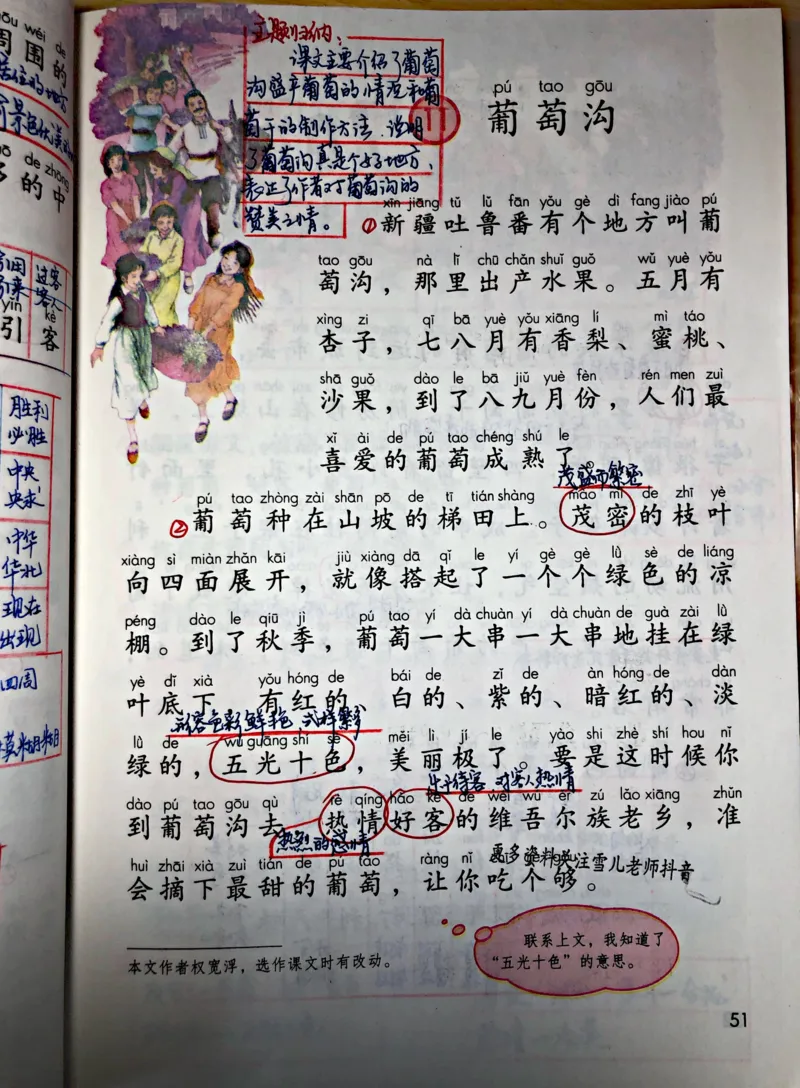 ōu wéi de
周围的
居住的地方
ō de zhōng
多的中
引来
过客
客人
yǐn kè
引 客
胜利
必胜
中央
央求
中华
华北
现在
出现
四周
模糊糊
主题归纳：
课文主要介绍了葡萄
沟盛产葡萄的情况和葡
萄干的制作方法，说明
了葡萄沟真是个好地方，
表达了作者对葡萄沟的
赞美之情。
11
pú tao gōu
葡萄沟
xīn jiāng tǔ lǔ fān yǒu gè dì fang jiào pú
①新疆吐鲁番有个地方叫葡
tao gōu nà lǐ chū chǎn shuǐ guǒ wǔ yuè yǒu
萄沟，那里出产水果。五月有
xìng zi qī bā yuè yǒu xiāng lí mì táo
杏子，七八月有香梨、蜜桃、
shā guǒ dào le bā jiǔ yuè fèn rén men zuì
沙果，到了八九月份，人们最
xǐ ài de pú tao chéng shú le
喜爱的葡萄成熟了
茂盛而繁密
pú tao zhòng zài shān pō de tī tián shàng mào mì de zhī yè
②葡萄种在山坡的梯田上。茂密的枝叶
xiàng sì miàn zhǎn kāi jiù xiàng dā qǐ le yí gè gè lǜ sè de liáng
向四面展开，就像搭起了一个个绿色的凉
péng dào le qiū jì pú tao yí dà chuàn yí dà chuàn de guà zài lǜ
棚。到了秋季，葡萄一大串一大串地挂在绿
yè dǐ xià yǒu hóng de bái de zǐ de àn hóng de dàn
叶底下，有红的、白的、紫的、暗红的、淡
形容色彩鲜艳，式样繁多
lǜ de wǔ guāng shí sè měi lì jí le yào shi zhè shí hou nǐ
绿的，五光十色，美丽极了。要是这时候你
乐于待客，对客人热情
dào pú tao gōu qù rè qíng hào kè de wéi wú ěr zú lǎo xiāng zhǔn
到葡萄沟去，热情好客的维吾尔族老乡，准
热烈的感情
huì zhāi xià zuì tián de pú tao ràng nǐ
会摘下最甜的葡萄，让你吃个够。
更多资料关注雪儿老师抖音
联系上文，我知道了
“五光十色”的意思。
本文作者权宽浮，选作课文时有改动。
51